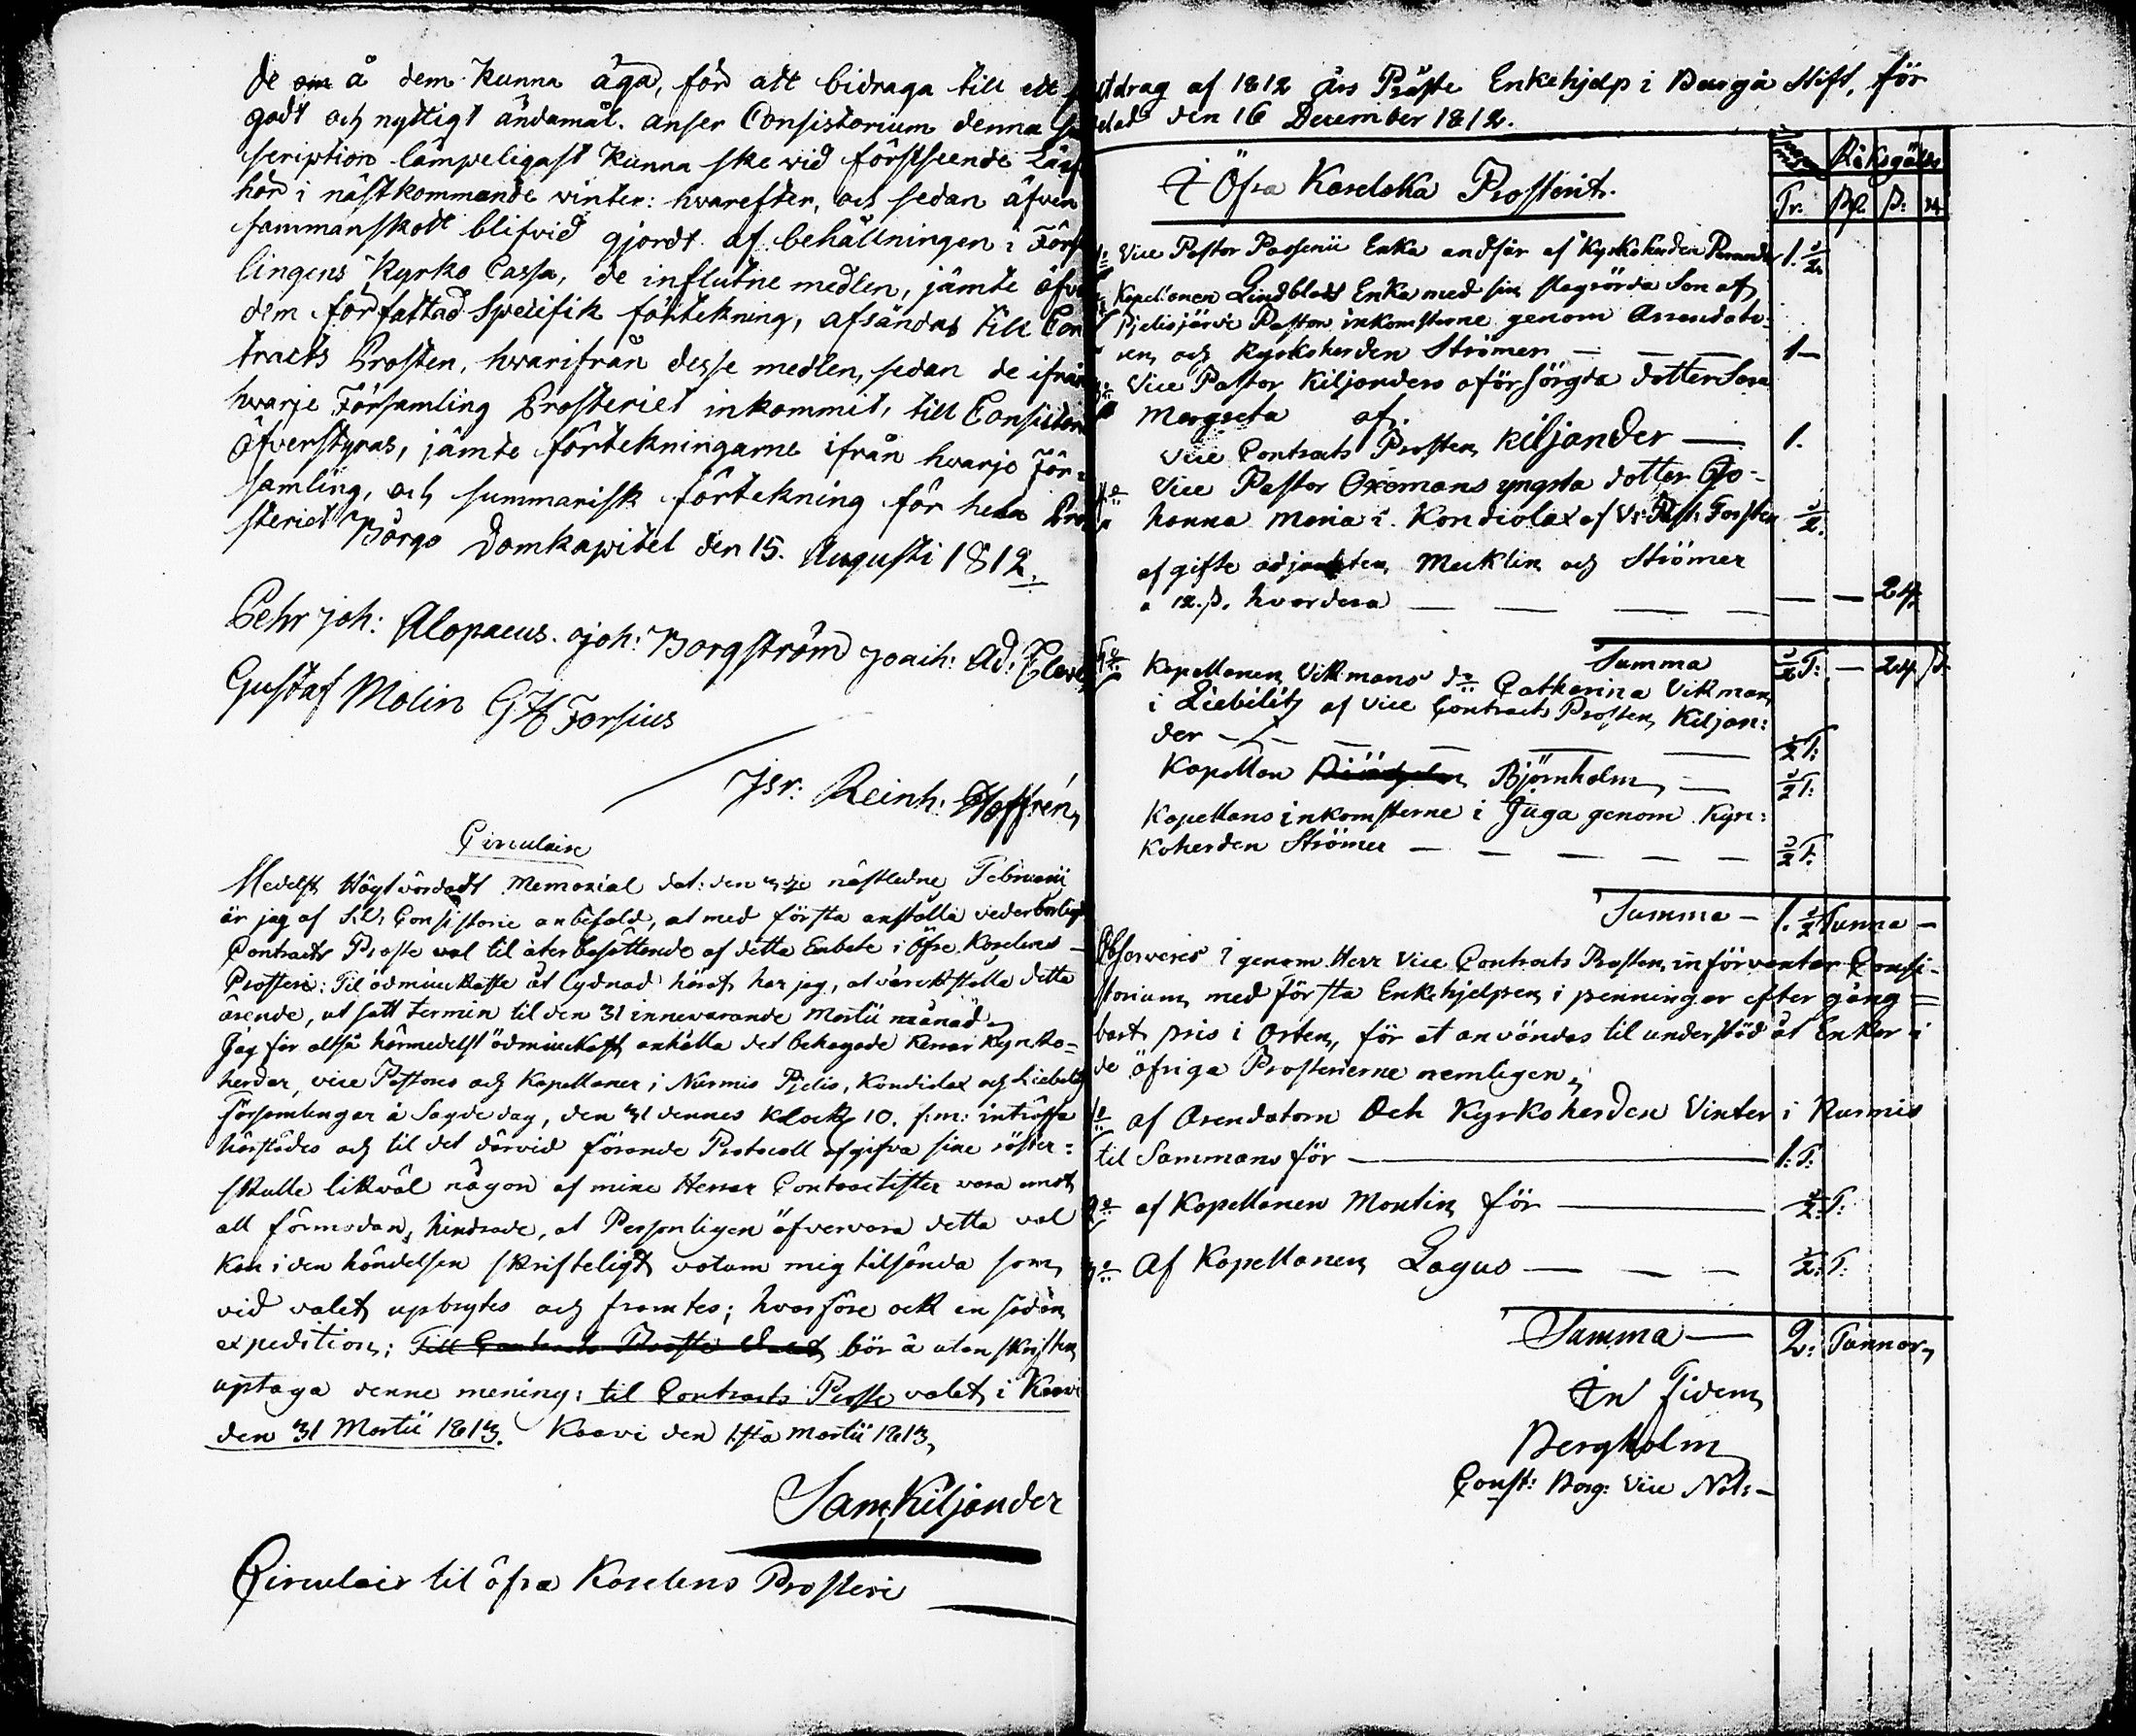 de å dem kunna äga, för att bidraga till ett
godt och nyttigt ändamål. anser Consistorium denna
scription lämpeligast kunna ske vid förstseende Läse
hör i nästkommande vinter: hvarefter, och sedan äfven
sammanskott blifvid gjordt af behållningen i Förs
lingens Kyrko Cassa, de influtne medlen, jämte öfver
dem författad Specifik förtekning, afsändas till Con
tracts Prosten, hvarifrån desse medlen, sedan de ifrån
hvarje Församling Prosteriet inkommit, till Consistor
öfverstyras, jämte förtekningarne ifrån hvarje För=
samling, och summarisk förtekning för hela Pro
steriet Borgo Domkapitel den 15. Augusti 1812.
Pehr Joh: Alopaeus. Joh: Borgström Joach: Ad:
Gustaf Molin G H Forsius
Isr: Reinh: Hoffrén
Circulaire
Medelst Högtvördadt Memorial dat: den 3dje nästledne Februarii
är jag af Consistorie anbefald, at med första anställa vederbörligt
Contracts Proste val til återbesättande af detta Embete i Öfre Karelens
Prosteri: Til ödmiukaste åt lydnad häraf har jag, at värckställa detta
ärende, ut satt termin til den 31 innevarande Martii månad
Jag får altså härmedelst ödmiukast anhålla det behagade Herrar Kyrko=
herdar, vice Pastores och Kapellaner i Nurmis Pjelis, Kondiolax och Liebelitz
Församlingar å Sagde dag, den 31 dennes klock 10. f:m: inträffa
härstädes och til det därvid förande Protocoll afgifva sine röster:
skulle likväl någon af mine Herrar Contractister vara emot
all förmodan, hindrade, at Personligen öfvervara detta val
kan i den händelsen skrifteligt votum mig tilsända som
vid valet upbrytes och framtes; hvarföre ock en sådan
expedition; Till Contracts Proste Valet bör å utanskriften
uptaga denne mening: til Contracts Proste valet i Kaavi
den 31 Martii 1813. Kaavi den 1sta Martii 1813,
Sam, Kiljander
Circulair til öfra Karelens Prosteri
utdrag af 1812 års Präste Enkehjelp i Borgå Stift, för
delad den 16 December 1812.
I Öfra Karelska Prosterit.
Riksgälds
Tr: Rd. ß: rst
1o Vice Pastor Passenii Enka andfår af Kyrkoherden 1. ½
Kapellanen Lindblads Enka med sin slagrörda Son af
Pjelisjärvi Pastors inkomsterne genom Arrendato-
ren och Kyrkoherden Strömer — — — 1—
3o Vice Pastor Kiljanders oförsörgda dotter Sara
Margreta af.
Vice Contracts Prosten Kiljander — 1.
4o Vice Pastor Oxemans yngsta dotter Jo-
hanna Maria i Kondiolax af V: Past: Forstén ½.
af gifte adjuncten Mecklin och Strömer
a 12.ß. hvardera — — — — — — 24
Summa ½T: — 24 ß.
5o Kapellanen Vikmans dr Catharina Vikman
i Liebelitz af Vice Contracts Prosten Kiljan:
der — — — — — ½T:
Kapellan Björnholm — ½T:
Kapellans inkomsterne i Juga genom Kyr:
koherden Strömer — — — — — ½T.
Summa — 1. ½ Tunna —
Observeres i genom Herr Vice Contracts Prosten införväntar Consi-
storium med första Enkehjelpen i penningar efter gång=
bart pris i Orten, för at användas til understöd åt Enkor i
de öfriga Prosterierne nemligen;
1o af Arendatorn Och Kyrkoherden Vinter i Nurmis
til Sammans för — 1: T:
2o af Kapellanen Montin för — ½: T:
3o Af Kapellanen Lagus — — — ½: T:
Summa — 2: Tunnor,
In Fidem
Bergholm
Const: Borg: Vice Not: —